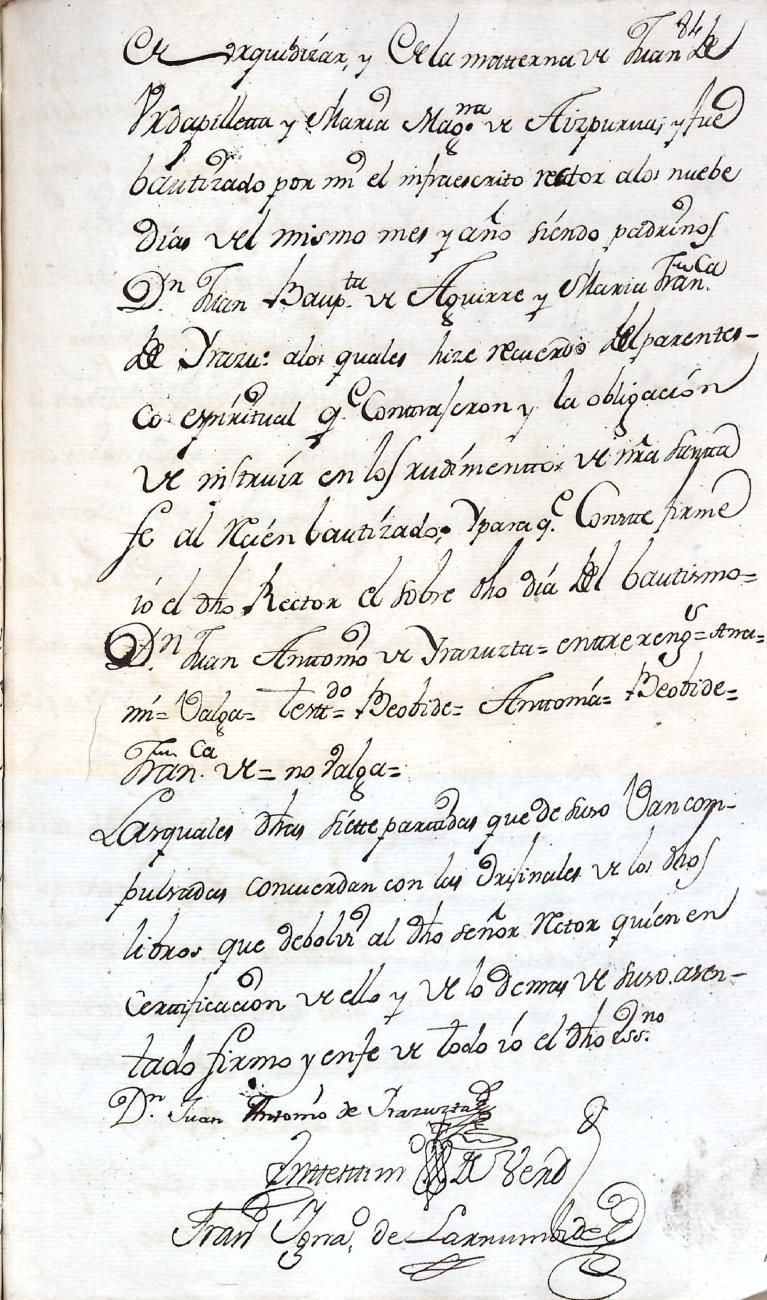 84
de Urquidizar, y de la matterna de Juan de
Vrdapilletta y Maria Mag.na de Aizpurua; y fue
bautizado por mi el infraescrito rector a los nuebe
dias del mismo mes y año siendo padrinos
Dn. Juan Baup.ta de Aguirre y Maria Fran.ca
de Yrazu: a los quales hize recuerdo del parentes-
co espiritual q.e Conttrageron y la obligación
de instruir en los rudimenttos de nra santta
fe al Recien bauttizado: Y para q.e Constte firme
io el dho Rector el sobre dho dia del bautismo=
Dn. Juan Anttonio de Yrazuzta= enttre rengs= Ama=
mi= Valga= testt.do= Beobide= Anttonia= Beobide=
Fran.ca de= no Valga=
Las quales dhas siette parttidas que de suso Van com-
pulsadas concuerdan con las Orijinales de los dhos
libros que debolvi al dho señor Rector quien en
Certtificacion de ello y de lo demas de suso asen-
tado firmo y en fe de todo io el dho ess.no
Dn. Juan Antonio de Yrazuzta
En ttesttim.o de Verd
Fran.co Ygna.o de Larrumbide